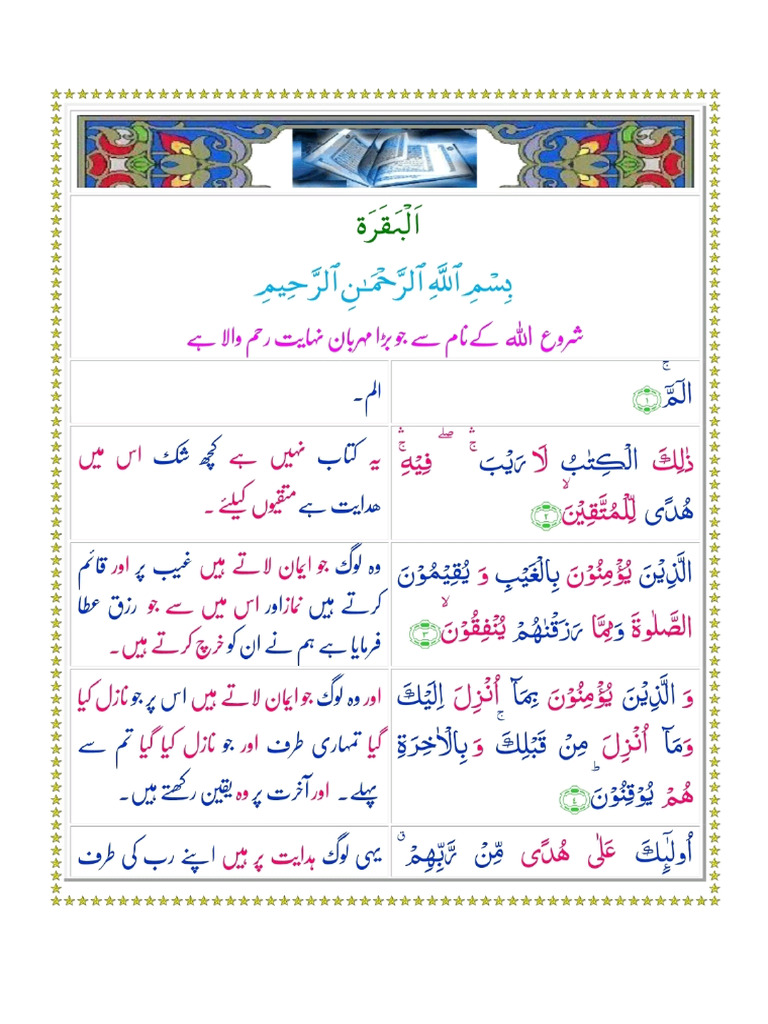 اَلْبَقَرَة
بِسْمِ ٱللَّهِ ٱلرَّحْمَـٰنِ ٱلرَّحِيمِ
شروع اللہ کے نام سے جو بڑا مہربان نہایت رحم والا ہے
الٓمّٓ ۚ ﴿۱﴾
الم۔
ذٰلِكَ الْكِتٰبُ لَا رَيْبَ ۛۚ ۖ فِيْهِ ۛۚ
هُدًى لِّلْمُتَّقِيْنَ ۙ ﴿۲﴾
یہ کتاب نہیں ہے کچھ شک اس میں
ھدایت ہے متقیوں کیلئے ۔
الَّذِيْنَ يُؤْمِنُوْنَ بِالْغَيْبِ وَ يُقِيْمُوْنَ
الصَّلٰوةَ وَمِمَّا رَزَقْنٰهُمْ يُنْفِقُوْنَ ۙ ﴿۳﴾
وہ لوگ جو ایمان لاتے ہیں غیب پر اور قائم
کرتے ہیں نماز اور اس میں سے جو رزق عطا
فرمایا ہے ہم نے ان کو خرچ کرتے ہیں۔
وَ الَّذِيْنَ يُؤْمِنُوْنَ بِمَآ اُنْزِلَ اِلَيْكَ
وَمَآ اُنْزِلَ مِنْ قَبْلِكَ ۚ وَ بِالْاٰخِرَةِ
هُمْ يُوْقِنُوْنَ ؕ ﴿٤﴾
اور وہ لوگ جو ایمان لاتے ہیں اس پر جو نازل کیا
گیا تمہاری طرف اور جو نازل کیا گیا تم سے
پہلے۔ اور آخرت پر وہ یقین رکھتے ہیں۔
اُولٰٓئِكَ عَلٰى هُدًى مِّنْ رَّبِّهِمْ ۗ
یہی لوگ ہدایت پر ہیں اپنے رب کی طرف